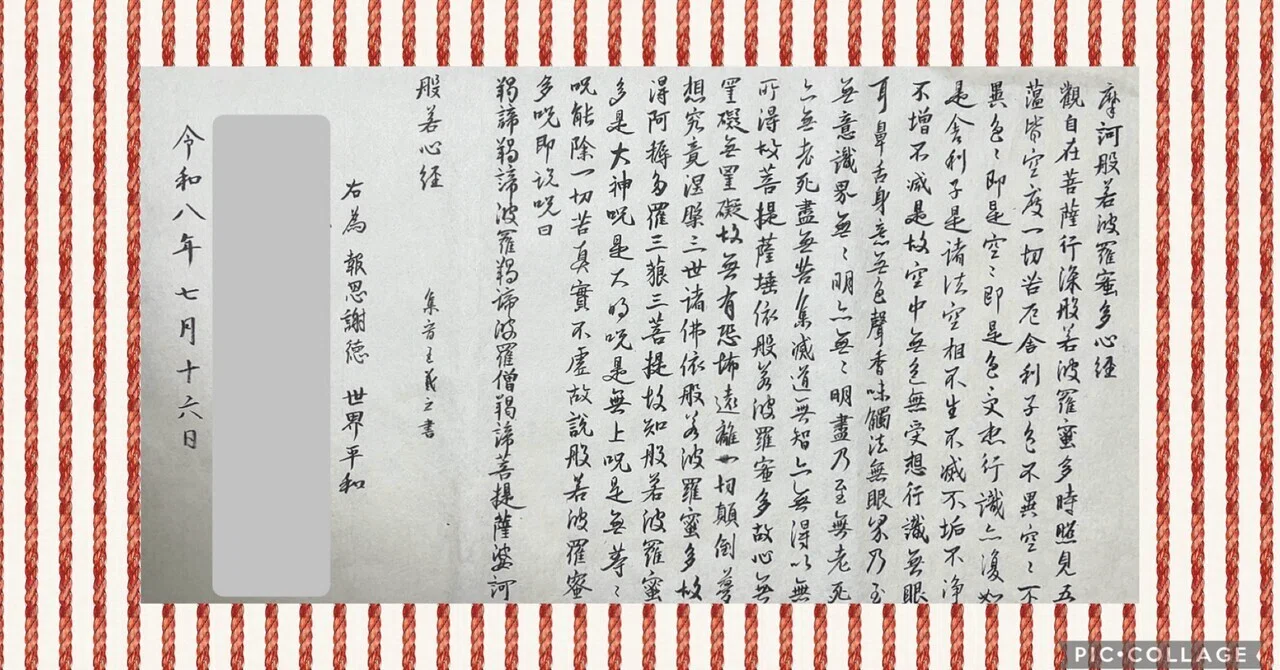 摩訶般若波羅蜜多心経
觀自在菩薩行深般若波羅蜜多時照見五
蘊皆空度一切苦厄舎利子色不異空〻不
異色〻即是空〻即是色受想行識亦復如
是舎利子是諸法空相不生不滅不垢不浄
不増不減是故空中無色無受想行識無眼
耳鼻舌身意無色聲香味觸法無眼界乃至
無意識界無〻明亦無〻明盡乃至無老死
亦無老死盡無苦集滅道無智亦無得以無
所得故菩提薩埵依般若波羅蜜多故心無
罣礙無罣礙故無有恐怖遠離一切顛倒夢
想究竟涅槃三世諸佛依般若波羅蜜多故
得阿耨多羅三藐三菩提故知般若波羅蜜
多是大神呪是大明呪是無上呪是無等〻
呪能除一切苦真實不虚故説般若波羅蜜
多呪即説呪曰
羯諦羯諦波羅羯諦波羅僧羯諦菩提薩婆訶
般若心経
集字王羲之書
右為 報恩謝徳 世界平和
令和八年七月十六日
PIC•COLLAGE